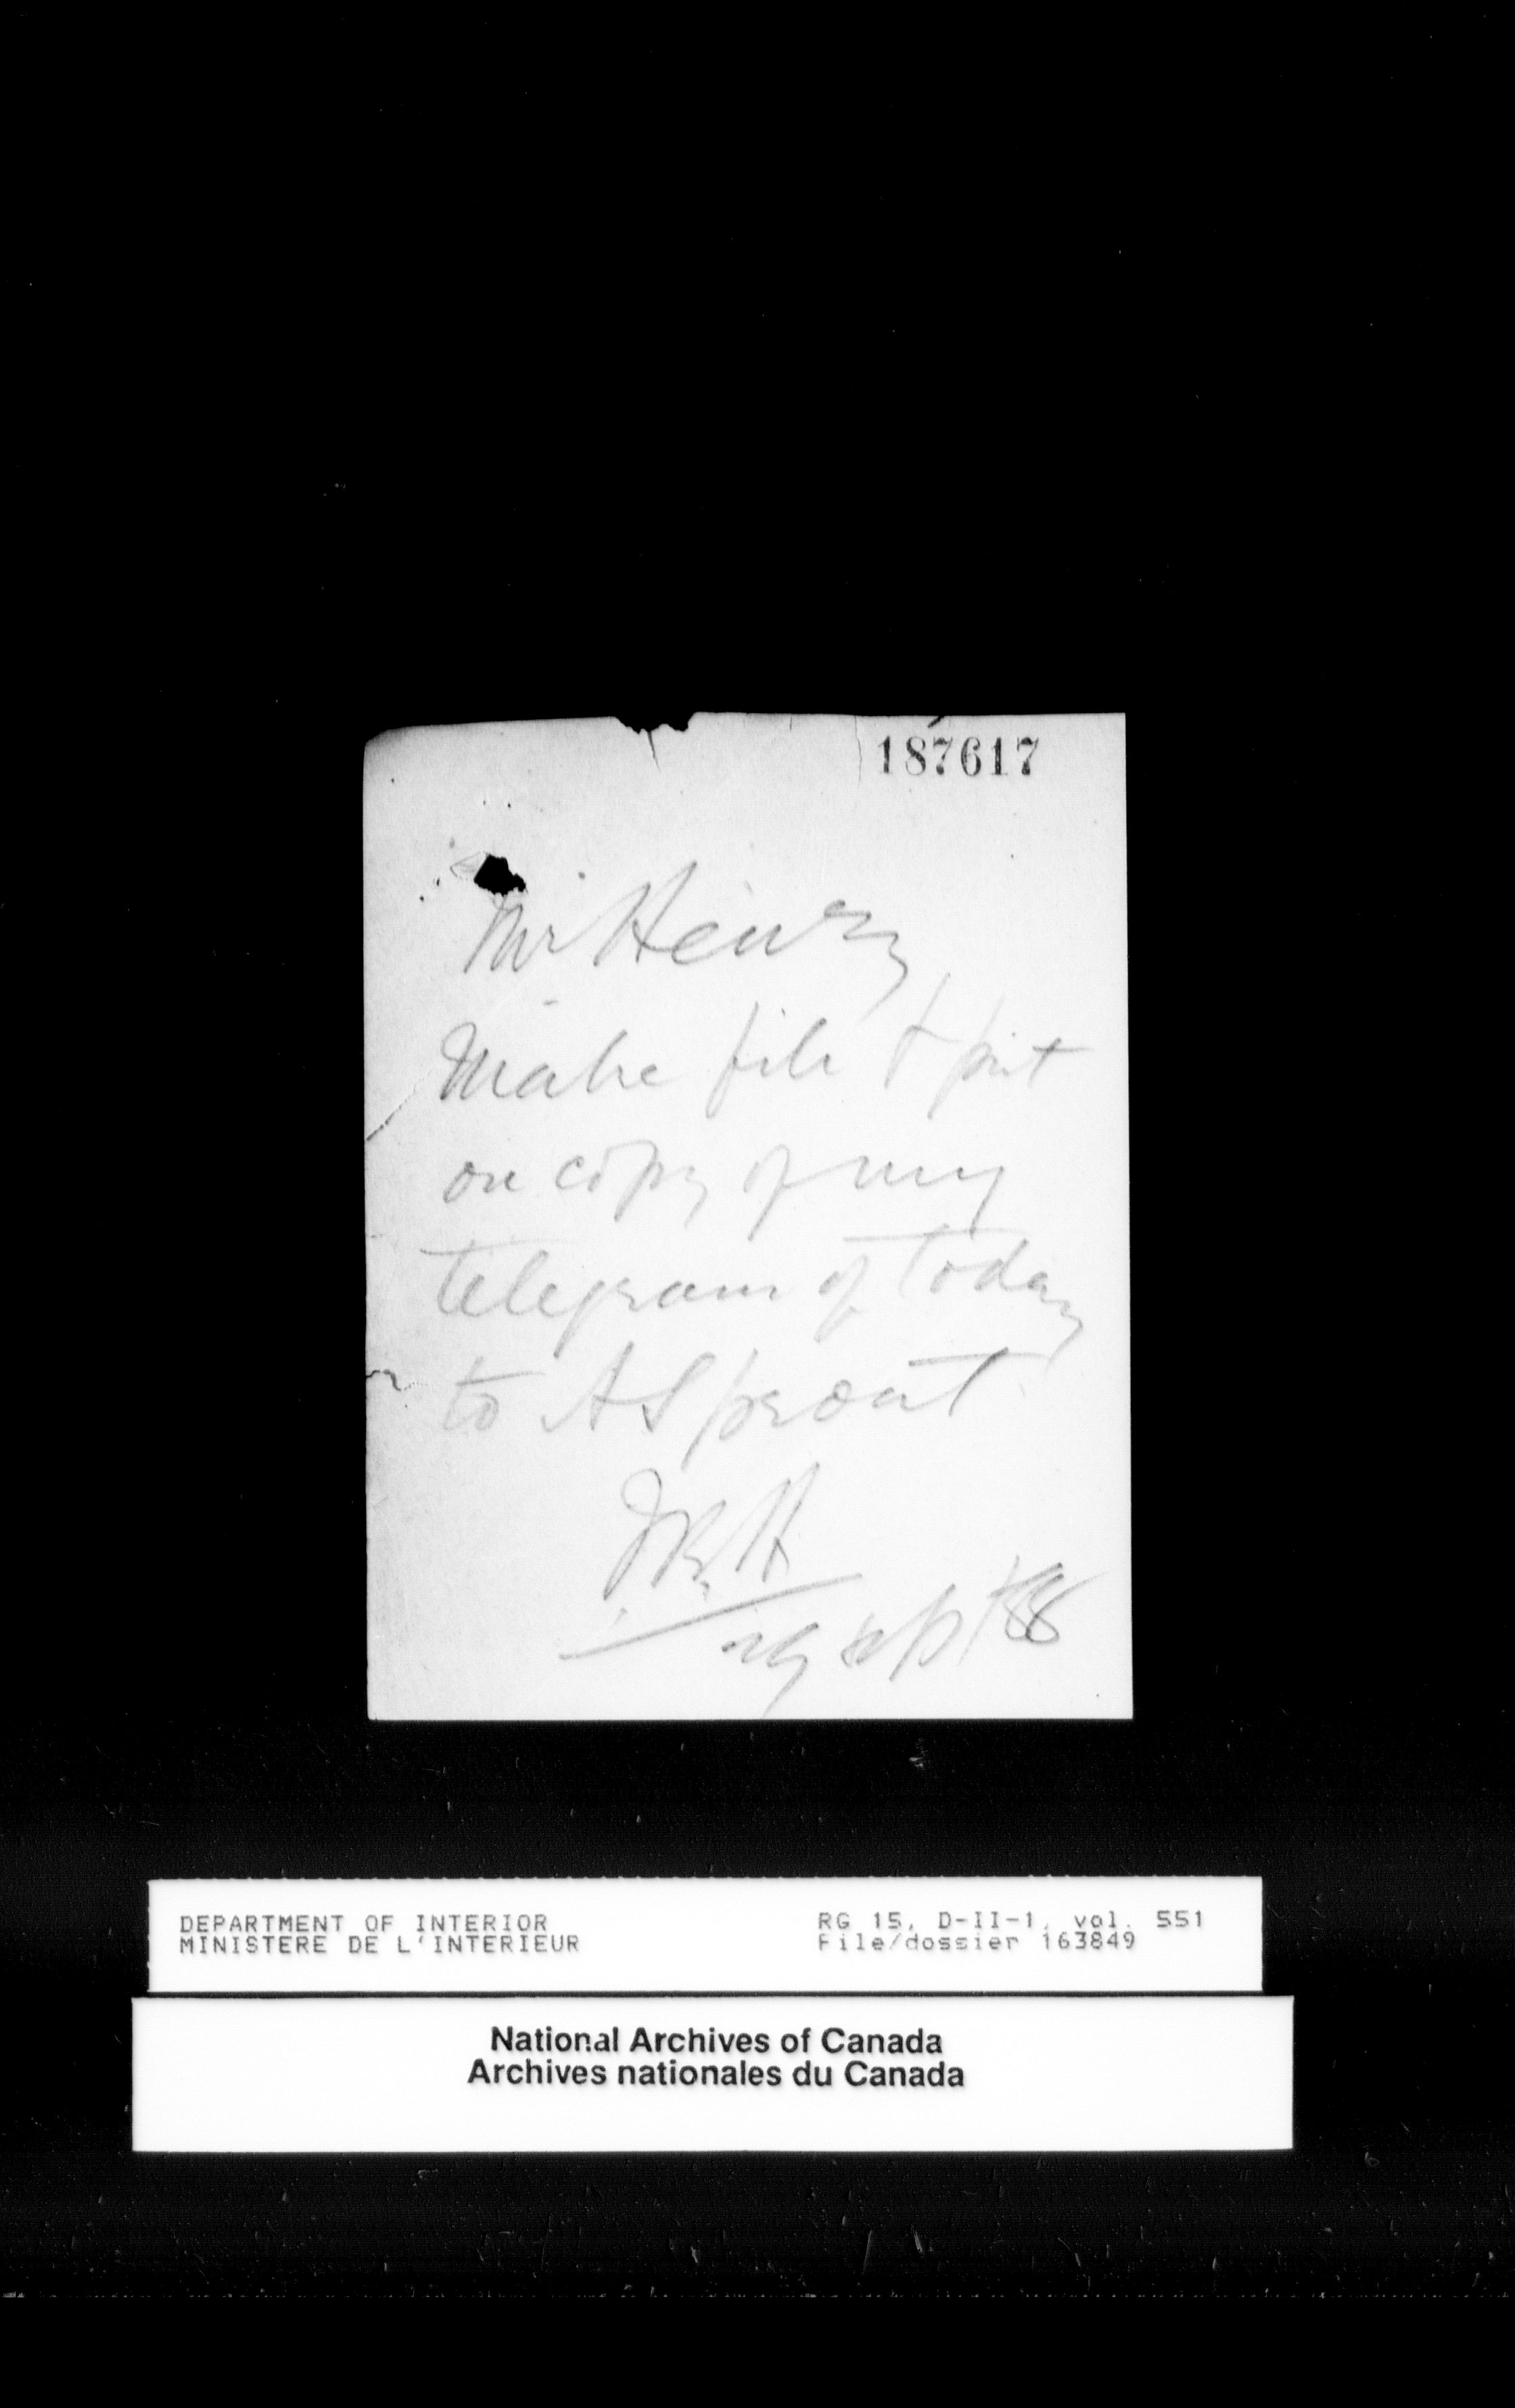 187617
Mr Henry
Make file & put
on copy of my
telegram of today
to A Sproat
JRH
29 Sept 88
DEPARTMENT OF INTERIOR
MINISTERE DE L'INTERIEUR
RG 15, D-II-1, vol. 551
File/dossier 163849
National Archives of Canada
Archives nationales du Canada